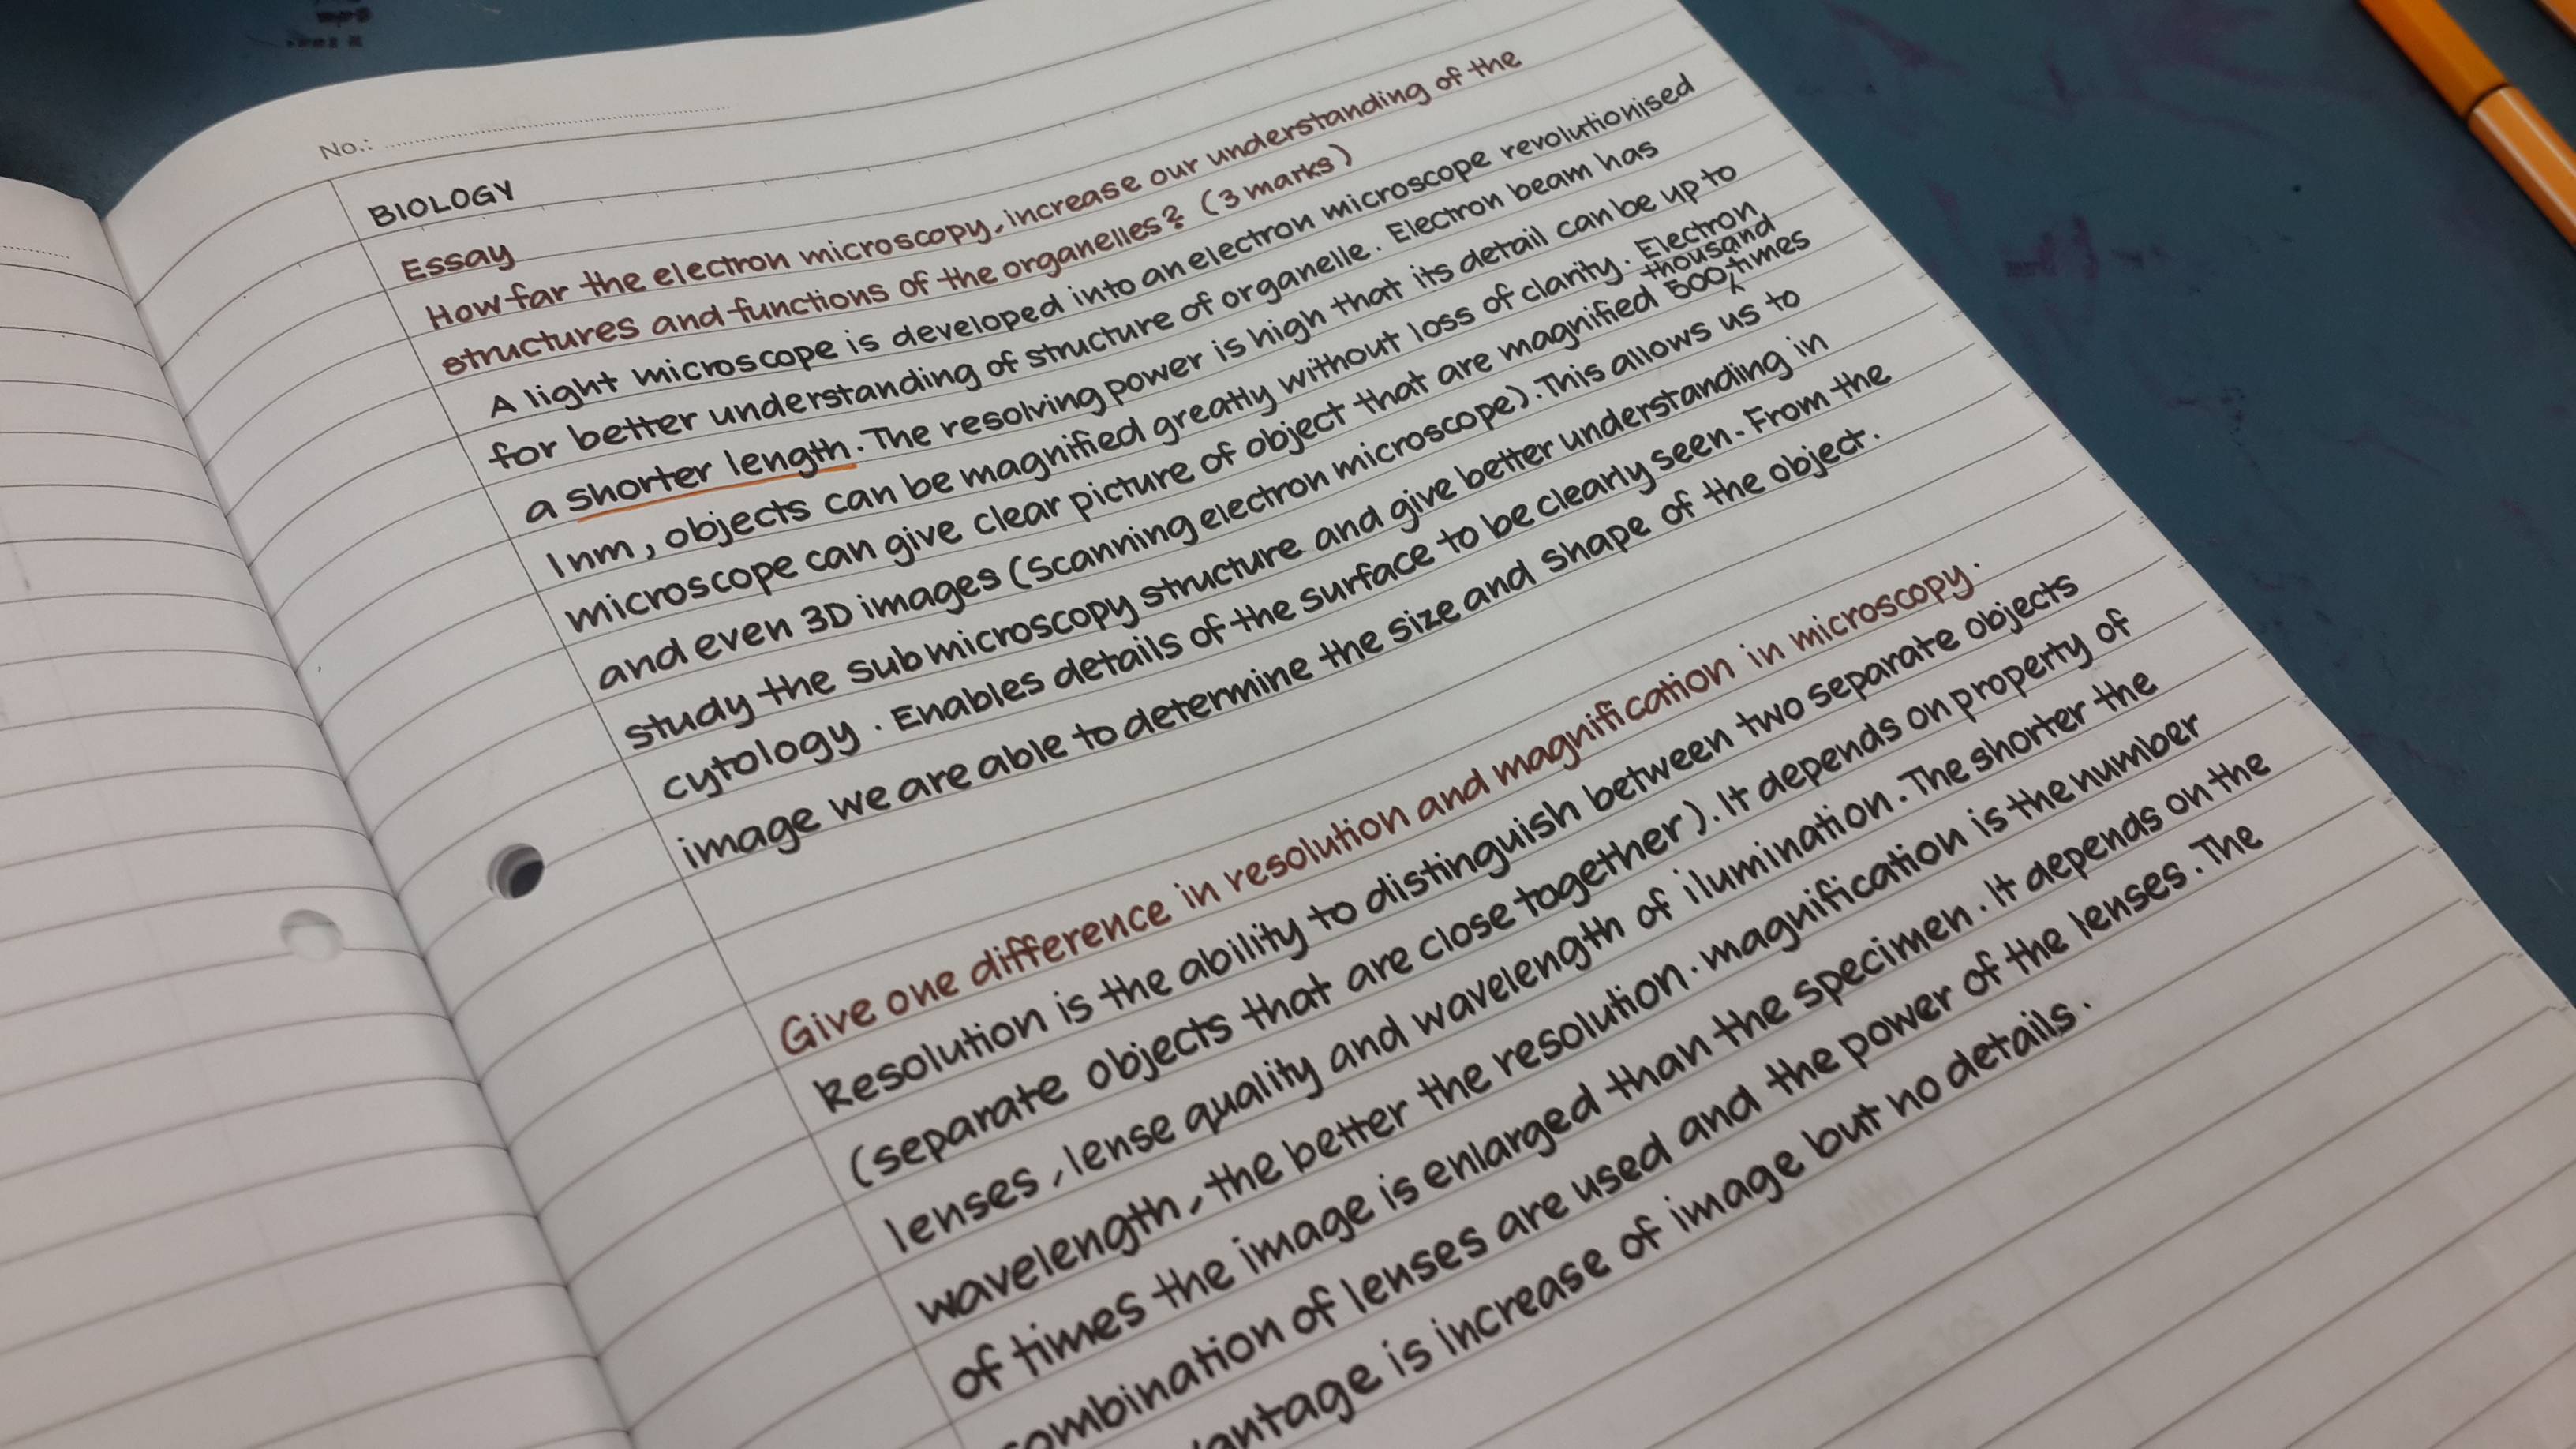 No.:
BIOLOGY
Essay
How far the electron microscopy, increase our understanding of the
structures and functions of the organelles? (3 marks)
A light microscope is developed into an electron microscope revolutionised
for better understanding of structure of organelle. Electron beam has
a shorter length. The resolving power is high that its detail can be up to
1nm, objects can be magnified greatly without loss of clarity. Electron
microscope can give clear picture of object that are magnified 500 thousand times
and even 3D images (Scanning electron microscope). This allows us to
study the submicroscopy structure and give better understanding in
cytology. Enables details of the surface to be clearly seen. From the
image we are able to determine the size and shape of the object.
Give one difference in resolution and magnification in microscopy.
Resolution is the ability to distinguish between two separate objects
(separate objects that are close together). It depends on property of
lenses, lense quality and wavelength of ilumination. The shorter the
wavelength, the better the resolution. magnification is the number
of times the image is enlarged than the specimen. It depends on the
ombination of lenses are used and the power of the lenses. The
antage is increase of image but no details.